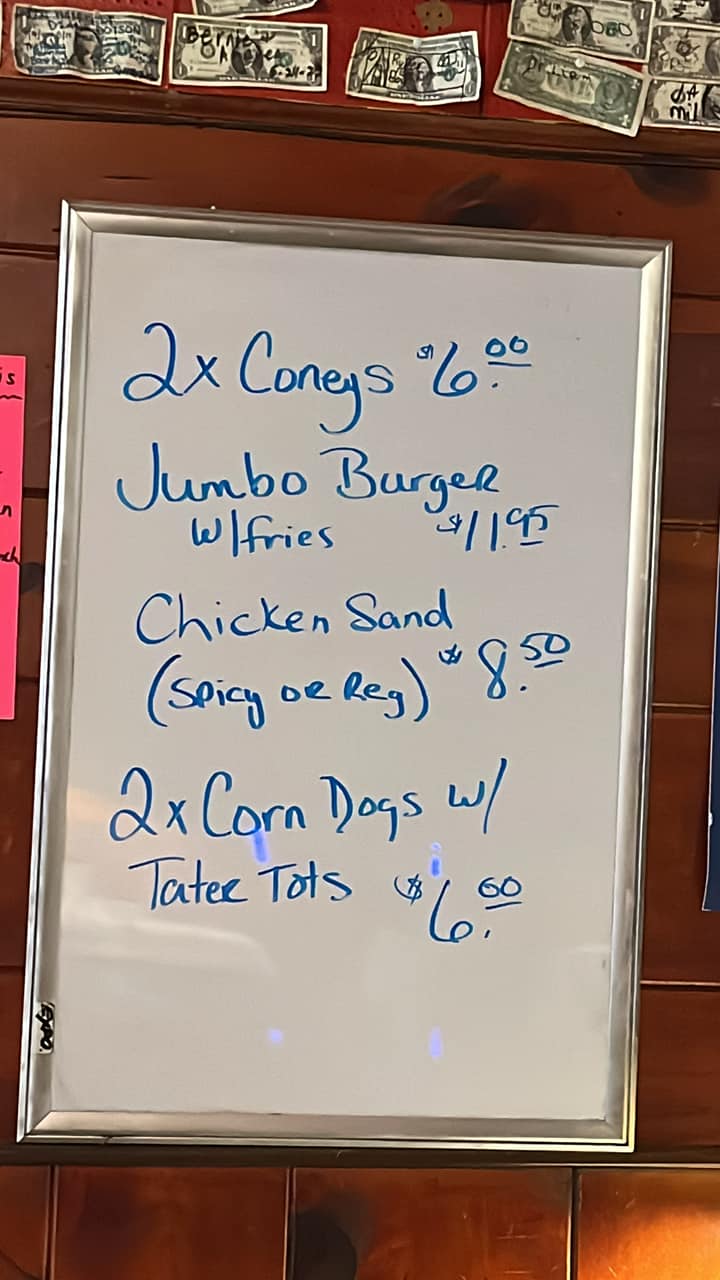 Bernie
2x Coneys $6.00
Jumbo Burger
w/fries $11.95
Chicken Sand
(Spicy or Reg) $8.50
2x Corn Dogs w/
Tater Tots $6.00
EXPO